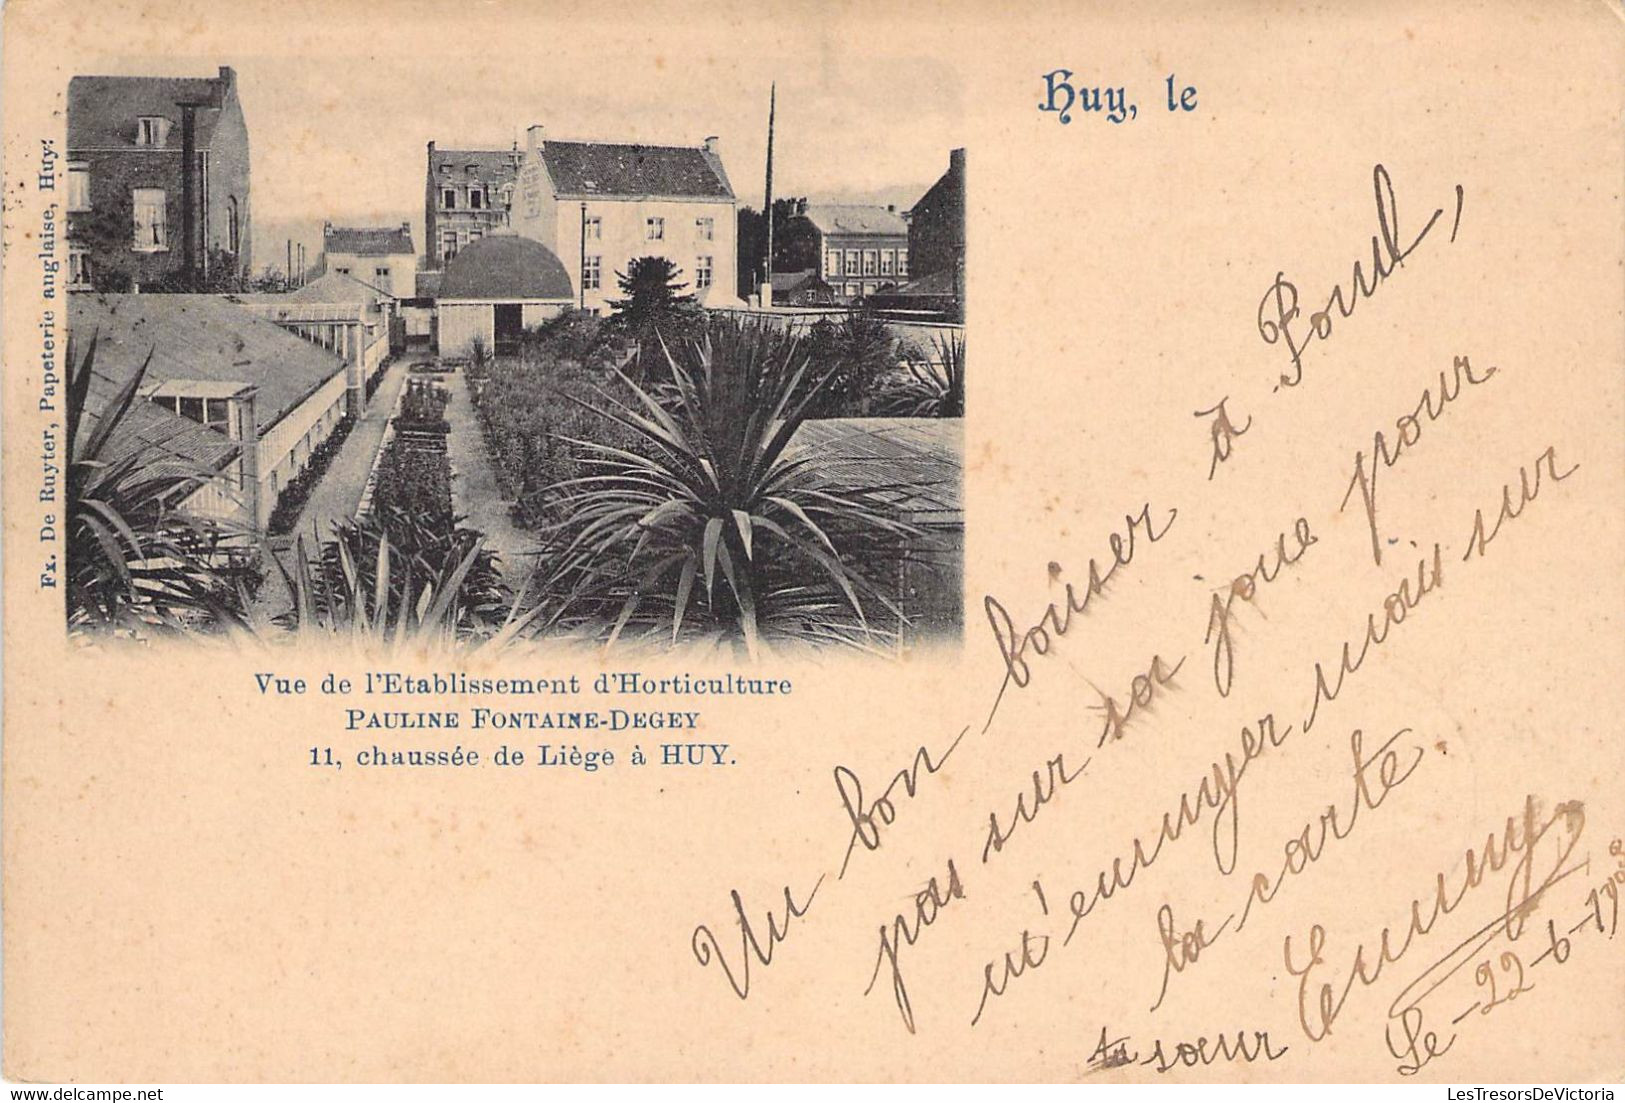 Huy, le
Fx. De Ruyter, Papeterie anglaise, Huy.
Vue de l'Etablissement d'Horticulture
PAULINE FONTAINE-DEGEY
11, chaussée de Liège à HUY.
Un bon baiser à Paul,
pas sur sa joue pour
m'ennuyer mais sur
la carte.
ta sœur Emmy
Le - 22-6-190
LesTresorsDeVictoria